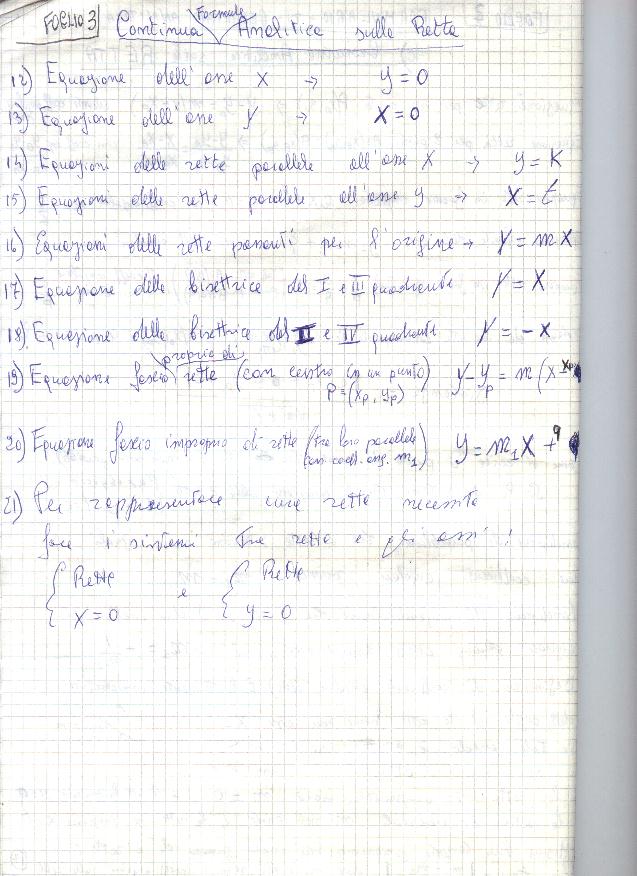 FOGLIO 3 Continua Formule Analitica sulla Retta
12) Equazione dell'asse x → y = 0
13) Equazione dell'asse y → x = 0
14) Equazioni delle rette parallele all'asse x → y = K
15) Equazioni delle rette parallele all'asse y → x = t
16) Equazioni delle rette passanti per l'origine → y = mx
17) Equazione della bisettrice del I e III quadrante y = x
18) Equazione della bisettrice del II e IV quadrante y = -x
19) Equazione fascio proprio di rette (con centro in un punto) y - yp = m (x - xp
P = (xp, yp)
20) Equazione fascio improprio di rette (tra loro parallele y = m1x + q
con coeff. ang. m1)
21) Per rappresentare una retta necessita
fare i sistemi tra retta e gli assi!
{ Retta e { Retta
x = 0 y = 0